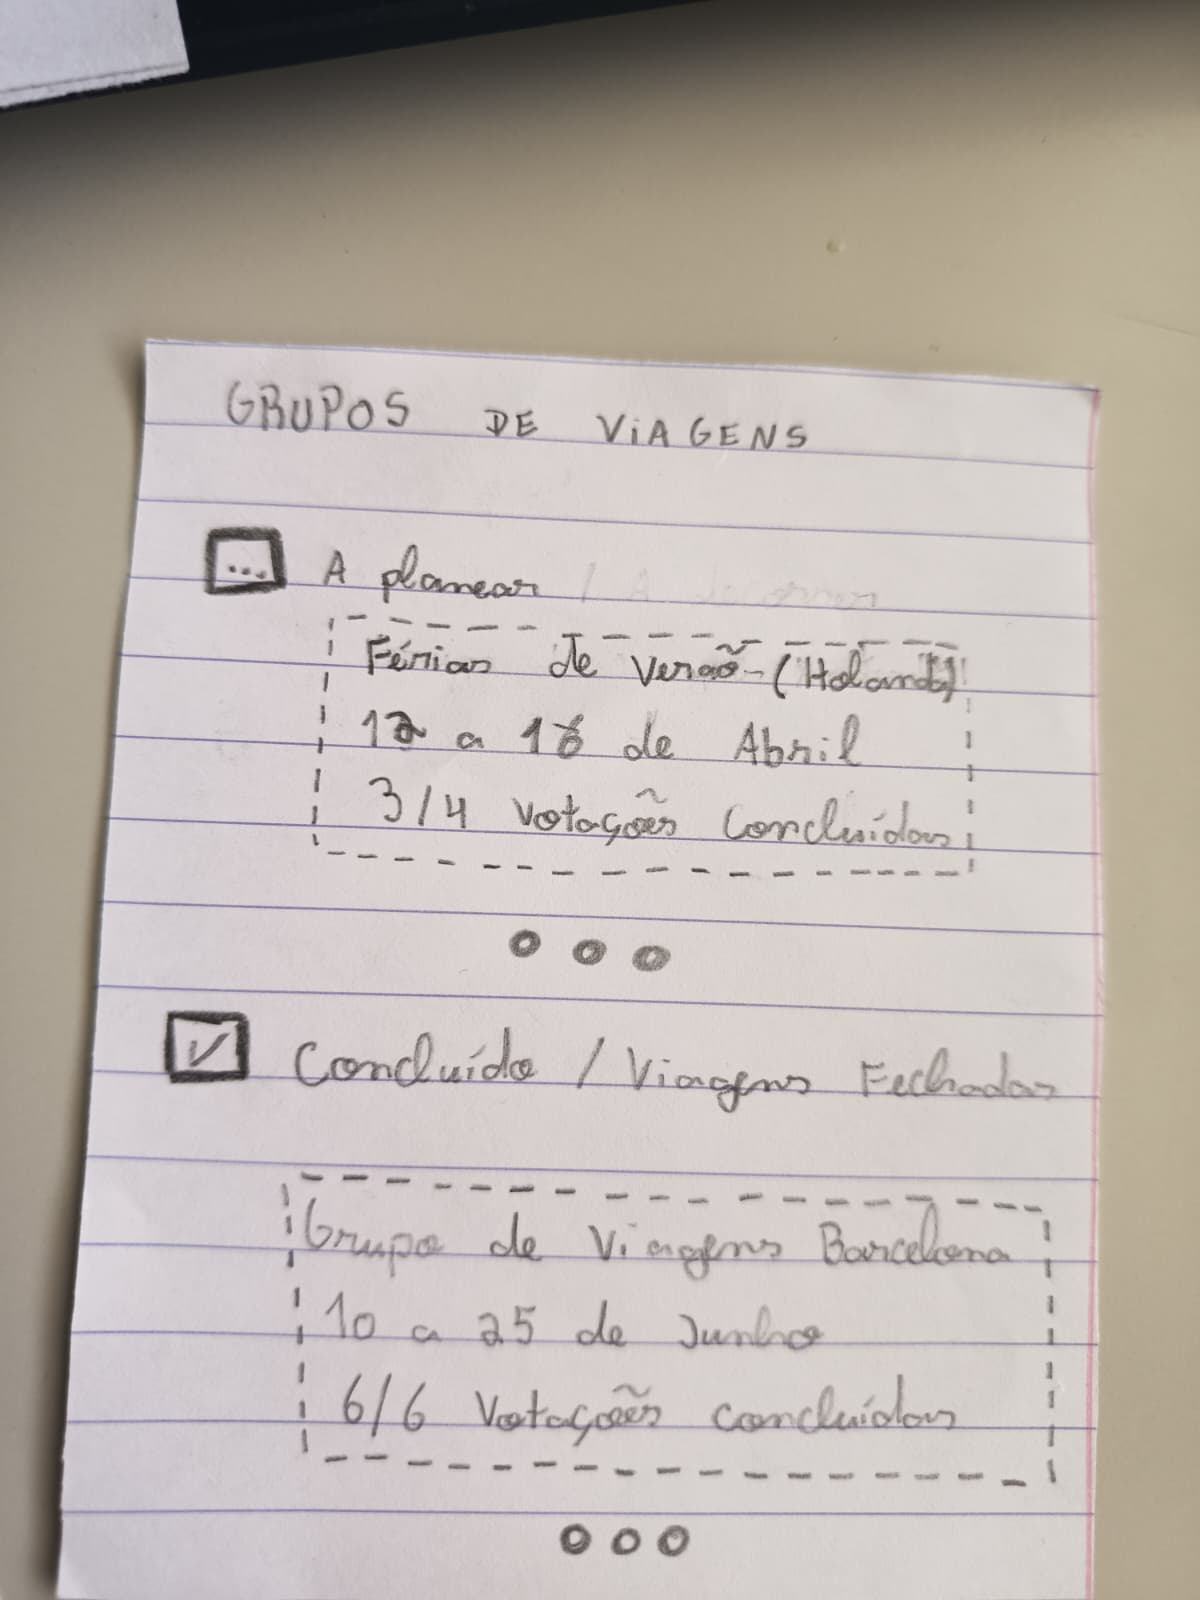 GRUPOS DE ViAGENS
... A planear / A decorrer
Férias de Verão - (Holanda)
12 a 16 de Abril
3/4 Votações Concluídas
Concluído / Viagens Fechadas
Grupo de Viagens Barcelona
10 a 25 de Junho
6/6 Votações concluídas